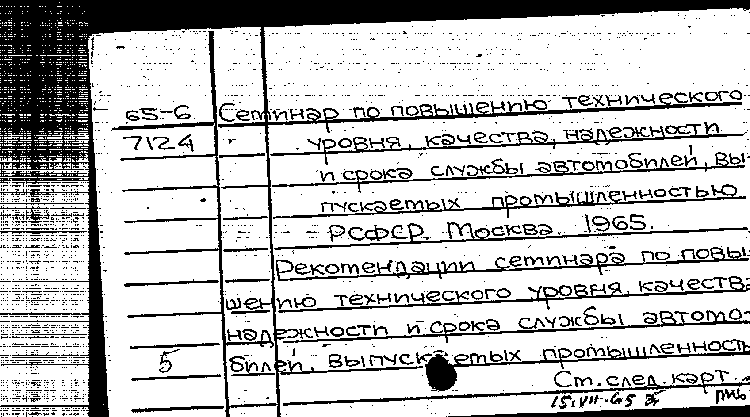 65-6 Семинар по повышению технического
7124 уровня, качества, надежности
и срока службы автомобилей, вы-
пускаемых промышленностью
РСФСР. Москва. 1965.
Рекомендации семинара по повы-
шению технического уровня, качества,
надежности и срока службы автомо-
5 билей, выпускаемых промышленность
См. след. карт.
15.VII.65